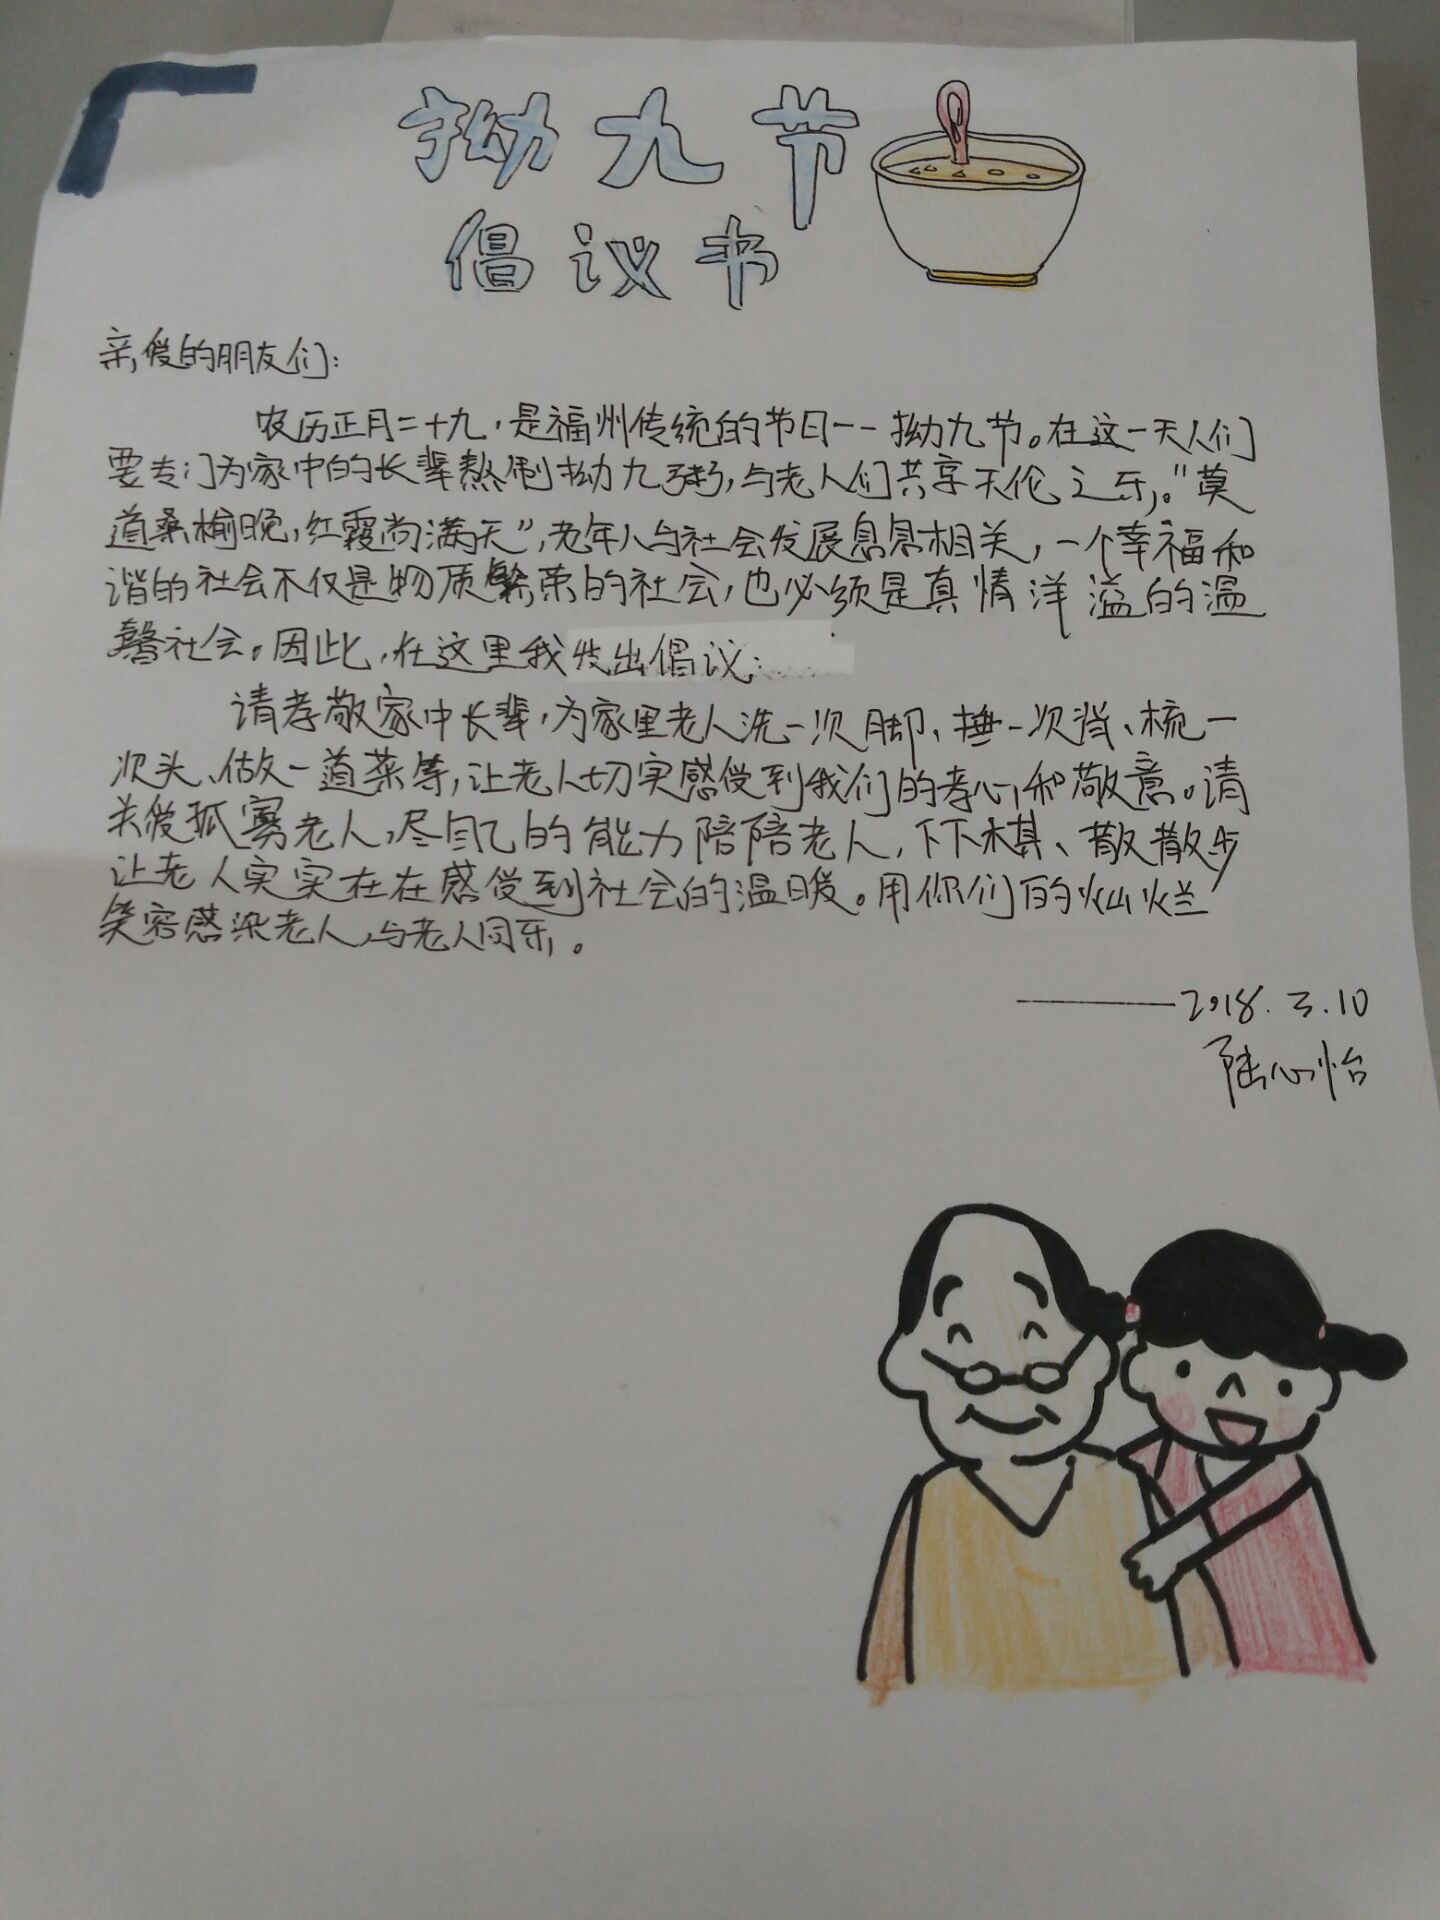 拗九节
倡议书
亲爱的朋友们：
农历正月二十九，是福州传统的节日——拗九节。在这一天人们
要专门为家中的长辈熬制拗九粥，与老人们共享天伦之乐。“莫
道桑榆晚，红霞尚满天”，老年人与社会发展息息相关，一个幸福和
谐的社会不仅是物质繁荣的社会，也必须是真情洋溢的温
馨社会。因此，在这里我发出倡议：
请孝敬家中长辈，为家里老人洗一次脚、捶一次背、梳一
次头、做一道菜等，让老人切实感受到我们的孝心和敬意。请
关爱孤寡老人，尽自己的能力陪陪老人，下下棋、散散步
让老人实实在在感受到社会的温暖。用你们的灿烂
笑容感染老人，与老人同乐。
——2018.3.10
陆心怡